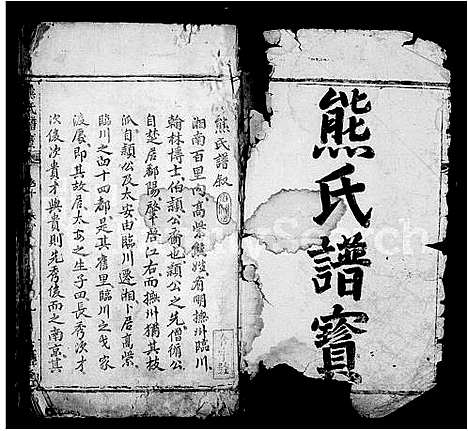 熊氏譜寳
熊氏譜叙
湘南百里內高紫熊姓有明撫州臨川
翰林博士伯頴公裔也頴公之先僧脩公
自楚居鄱陽肇啓江右而撫州猶其枝
派自頴公及太安由臨川遷湘卜居高紫
臨川之四十四都是其舊里臨川之戈家
渡屋即其故居太安之生子四長秀次才
次俊次貴才與貴則先秀俊而之南京其